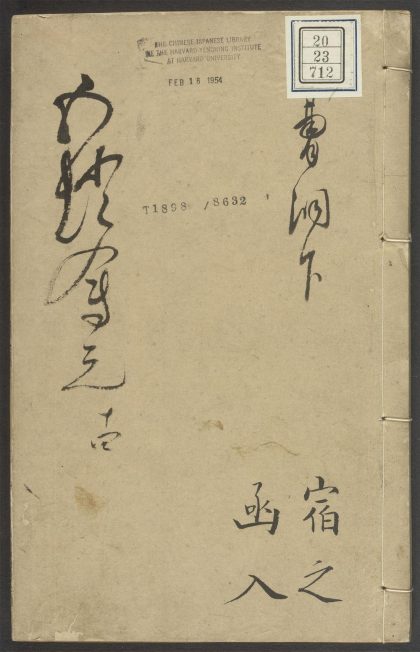 THE CHINESE-JAPANESE LIBRARY
OF THE HARVARD-YENCHING INSTITUTE
AT HARVARD UNIVERSITY
FEB 16 1954
20
23
712
T1898 /8632
曹洞下
宿之
函入
五燈會元 十四